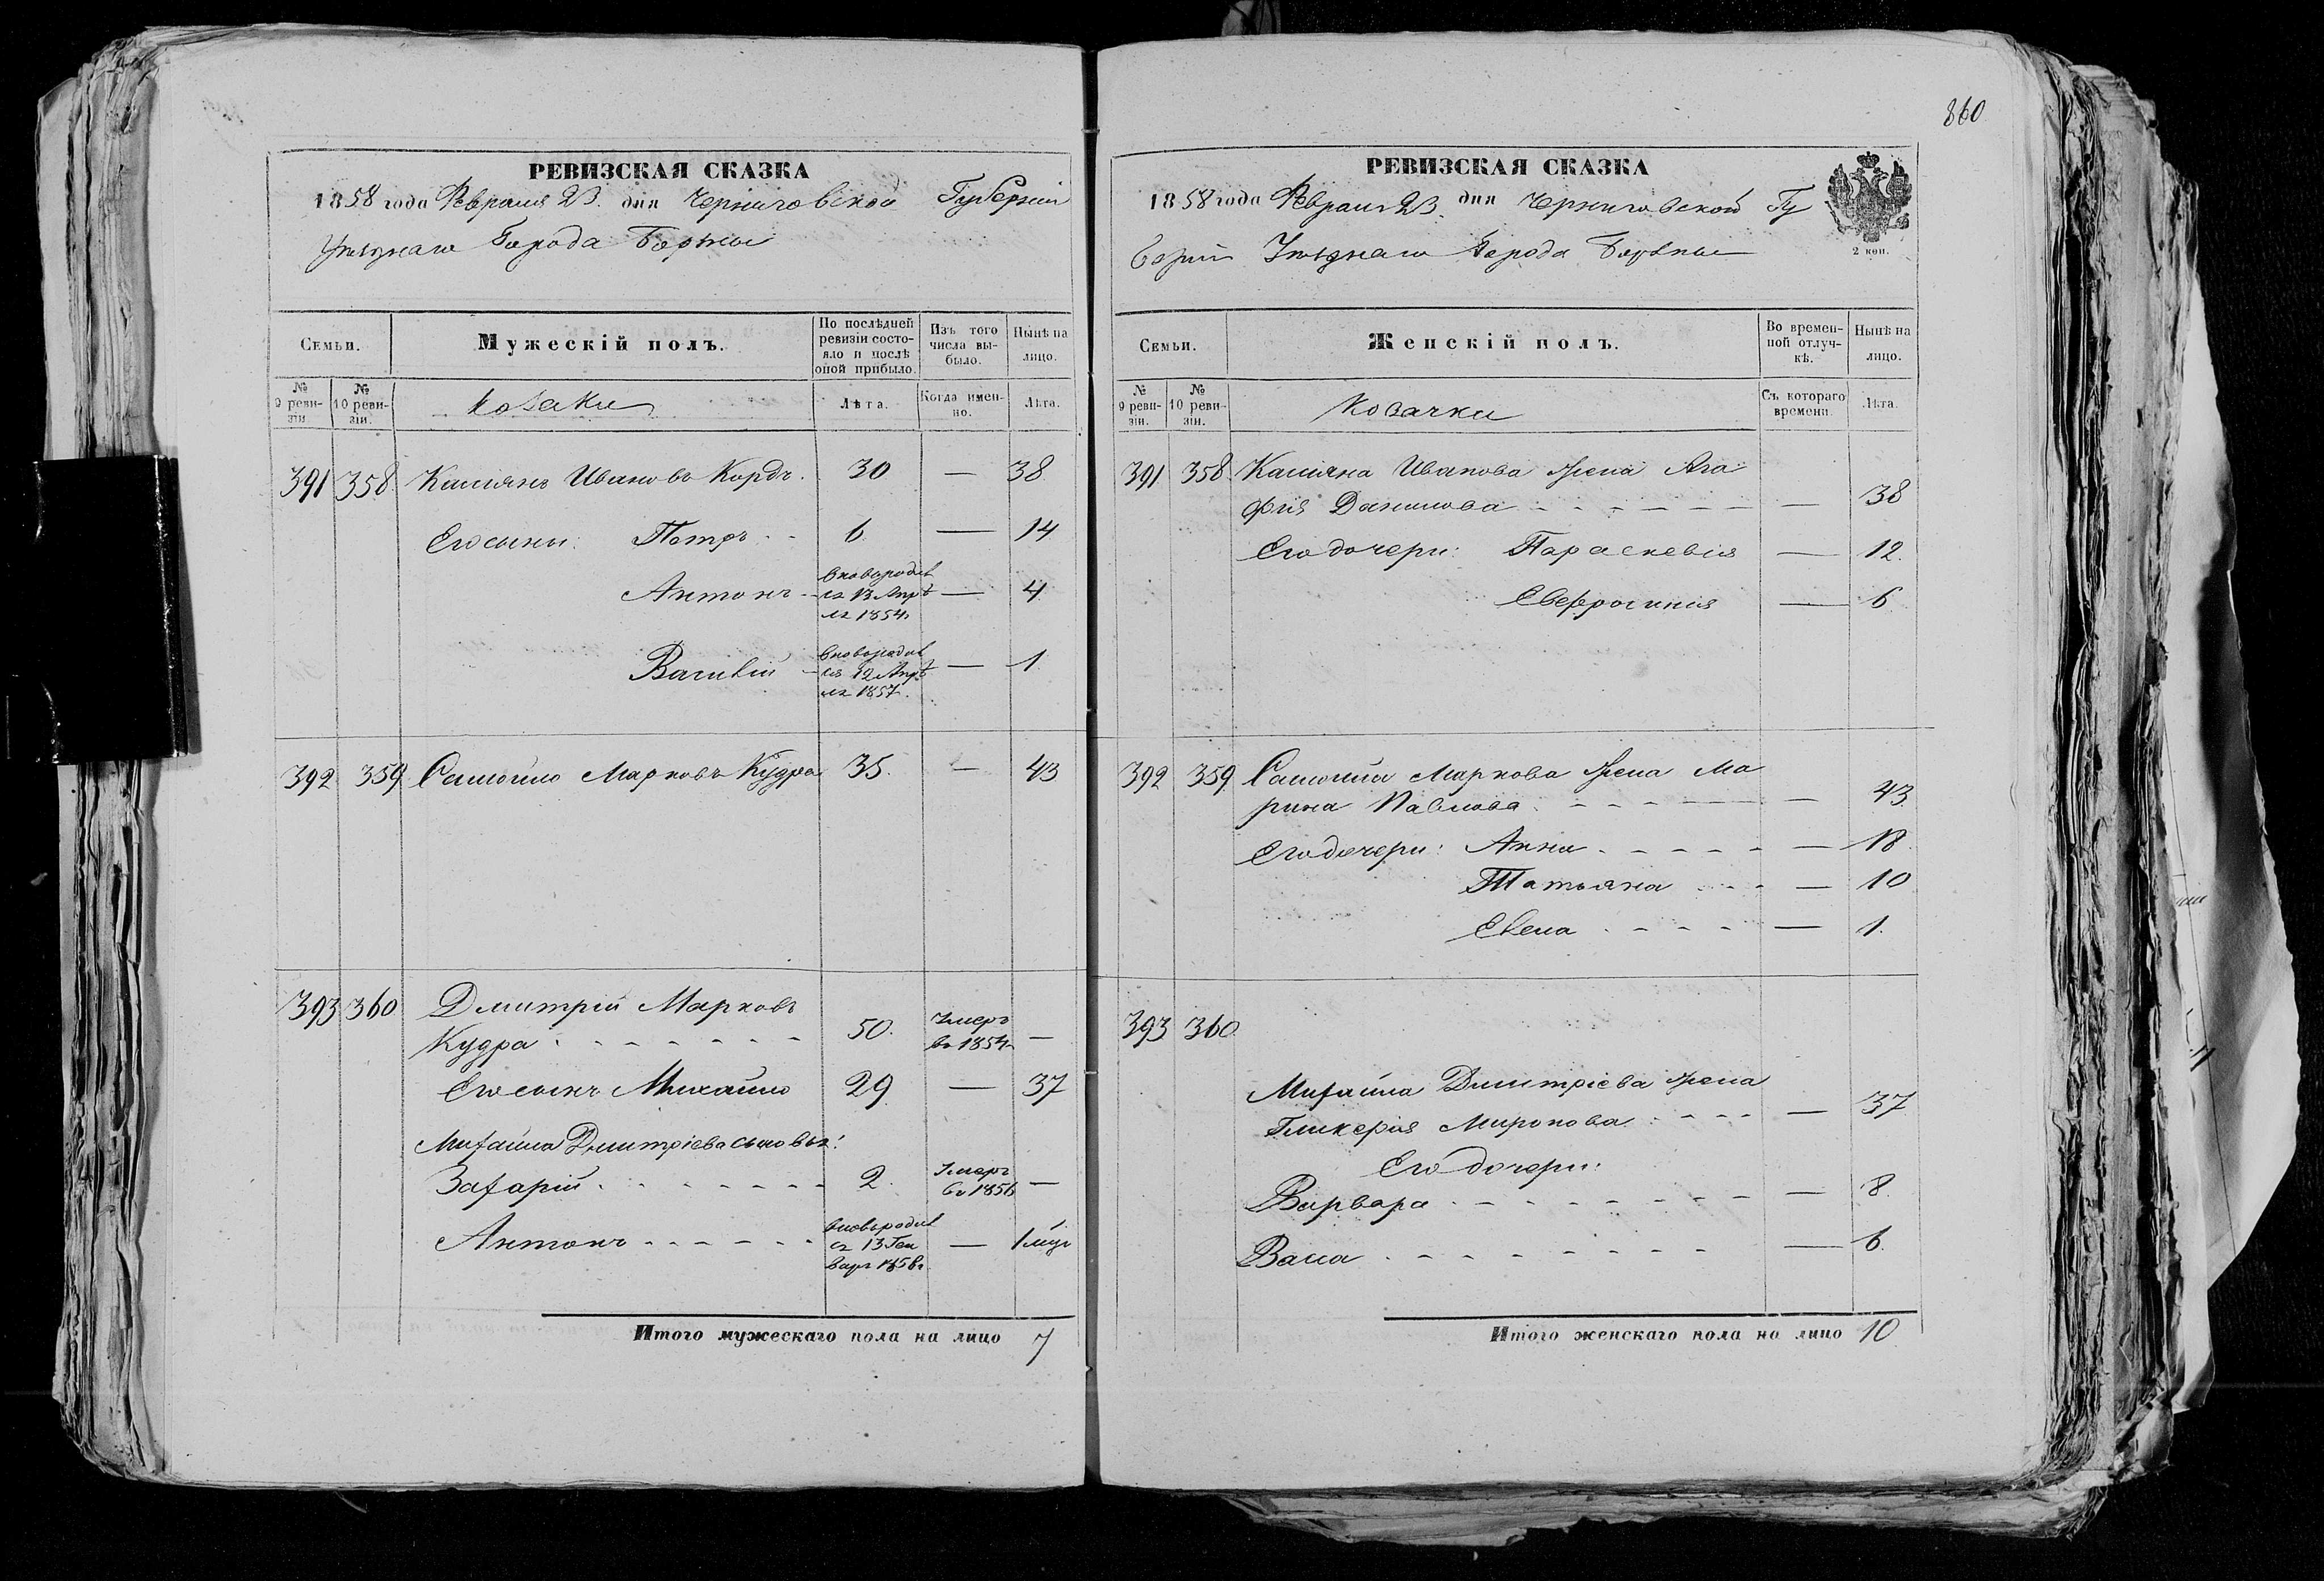 860
РЕВИЗСКАЯ СКАЗКА
1858 года Февраля 23. дня Черниговской Губерніи
Уѣзднаго Города Борзны
Семьи.
Мужескій полъ.
По послѣдней ревизіи состояло и послѣ оной прибыло.
Изъ того числа выбыло.
Нынѣ на лицо.
№ 9 ревизіи
№ 10 ревизіи.
Козаки
Лѣта.
Когда именно.
Лѣта.
391 358 Касіянъ Ивановъ 30 — 38
Его сыны: Петръ 6 — 14
Антонъ вновь родил
ся 13 Апрѣ — 4
ля 1854
Василій вновь родил
ся 12 Апрѣ — 1
ля 1857.
392 359 Самойло Марковъ Кудра 35. — 43
393 360 Дмитрій Марковъ
Кудра 50. Умеръ
въ 1854 —
Его сынъ Михайло 29 — 37
Михайла Дмитріева сыновья:
Захарій 2. Умеръ
въ 1856 —
Антонъ вновь родил
ся 13 Ген — 1 мѣс
варя 1858
Итого мужескаго пола на лицо 7
РЕВИЗСКАЯ СКАЗКА
1858 года Февраля 23. дня Черниговской Гу
берніи Уѣзднаго Города Борзны
2 коп.
Семьи.
Женскій полъ.
Во временной отлучкѣ.
Нынѣ на лицо.
№ 9 ревизіи.
№ 10 ревизіи.
Козачки
Съ котораго времени.
Лѣта.
391 358 Касіяна Иванова жена Ага
фія Данилова — 38
Его дочери: Параскевія — 12.
Евфросинія — 6.
392 359 Самойла Маркова жена Ма
рина Павлова — 43
Его дочери: Анна — 18.
Татьяна — 10
Елена — 1.
393 360
Михайла Дмитріева жена
Гликерія Миронова — 37
Его дочери:
Варвара — 8.
Васса — 6.
Итого женскаго пола на лицо 10